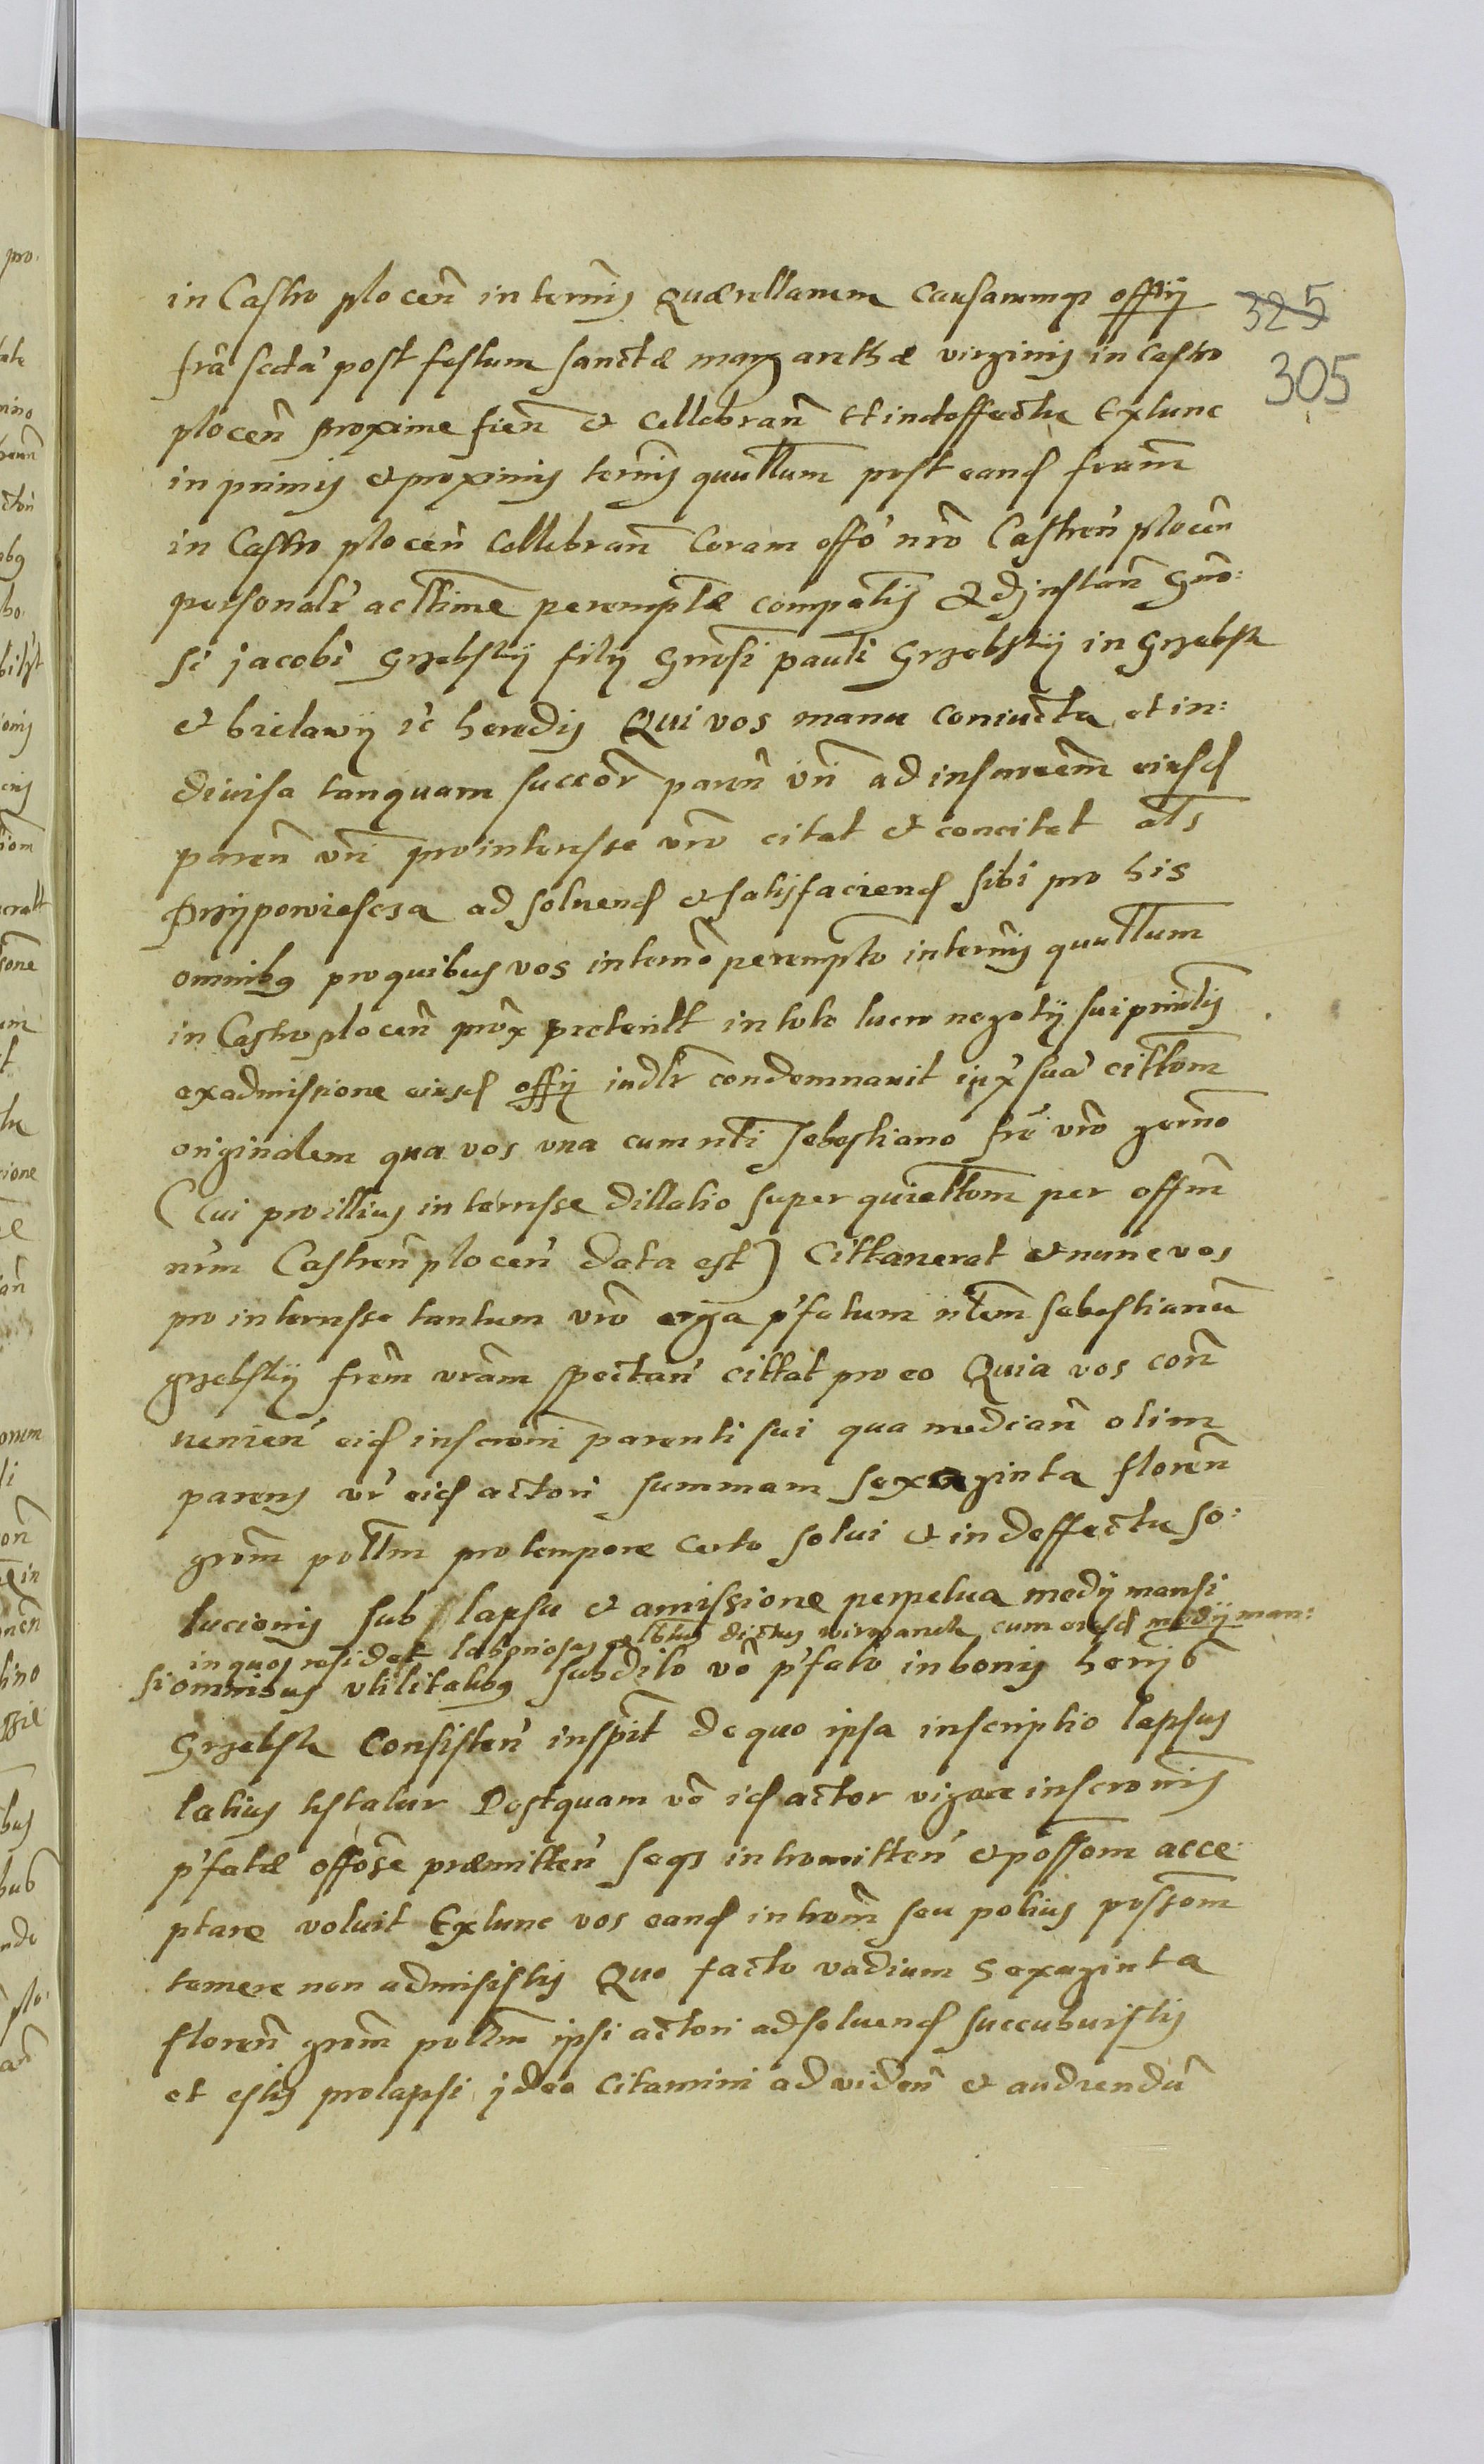 in Castro plocen̄ in terminis quærellarum causarumq3 offij
325
305
fr̄a sc̄da post festum sanctæ margarethæ virginis in castro
plocen̄ proxime fien̄ et cellebran̄ Et indeffectu Extunc
in primis et proximis termis quęrllarum post eand feriam
in Castro plocen̄ cellebran̄ coram offo nrō Castren̄ plocen̄
personalr̄ acttime peremptæ compatis Ad instan̄ Gnō:
si jacobi Grzebskij filij Gnōsi pauli Grzebskij in Grzebsk
et bielawy ꝛc heredis Qui vos manu coniuncta et in:
diuisa tanquam succor̄ paren̄ vri ad inscrōem eiusd
paren̄ vri pro interesse vrō citat et concitat als
Przypowiescza ad soluend et satisfaciend sibi pro his
omnibq pro quibus vos in termō perempto in termis
in Castro plocen̄ prox̄ preterit in toto lucro negotij sui principalis
ex admissione eiusd offij iudlr condemnauit iux̄ suā cittōm
originalem qua vos vna cum nbli Sebestiano frē vrō germō
(Cui pro illius interesse dillatio super quiettōm per offm
nrm Castren̄ plocen̄ data est) Cittauerat et nunc vos
pro interesse tantum vrō erga p'fatum nblem Sebestianū
grzebskij frem vrām spectan̄ cittat pro eo Quia vos con̄
uenien̄ eid inscroni parenti sui qua median̄ olim
parens vr̄ eid actori summam sexaginta floren̄
grom pollm pro tempore certo solui et in deffectu so:
lucionis sub lapsu et amissione perpetua medij mansi
in quos residet laboriosus dictus cum eiusd medij man:
si omnibus vtilitatibq subdito vō p'fato in bonis
Grzebsk Consisten̄ De quo ipsa inscriptio lapsus
latius testatur Postquam vō id actor vigore inscronis
p'fatæ offōse præmitten̄ seq3 intromitten̄ et possom acce:
ptare voluit Extunc vos eand introm̄ seu potius possom
temere non admisistis Quo facto vadium sexaginta
floren̄ grom pollm ipsi actori ad soluend succubuistis
et estis prolapsi jdeo citamini ad viden̄ et audiendū